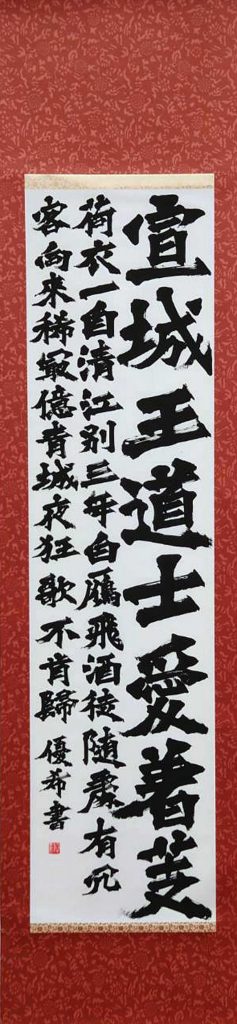 宣城王道士愛着芰
荷衣一自清江別三年白鴈飛酒徒随處有
客向来稀㝡憶青城夜狂歌不肯歸 優希書